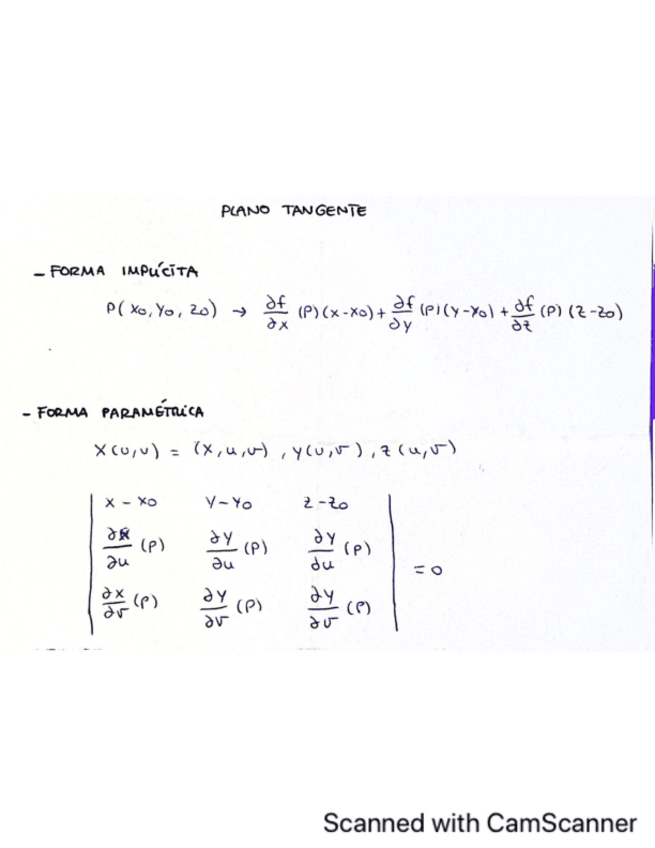 PLANO TANGENTE
- FORMA IMPLÍCITA
P(x0, y0, z0) → ∂f/∂x (P)(x-x0) + ∂f/∂y (P)(y-y0) + ∂f/∂z (P)(z-z0)
- FORMA PARAMÉTRICA
X(u,v) = (x,u,v), y(u,v), z(u,v)
| x-x0 y-y0 z-z0 |
| ∂x/∂u (P) ∂y/∂u (P) ∂y/∂u (P) | = 0
| ∂x/∂v (P) ∂y/∂v (P) ∂y/∂v (P) |
Scanned with CamScanner